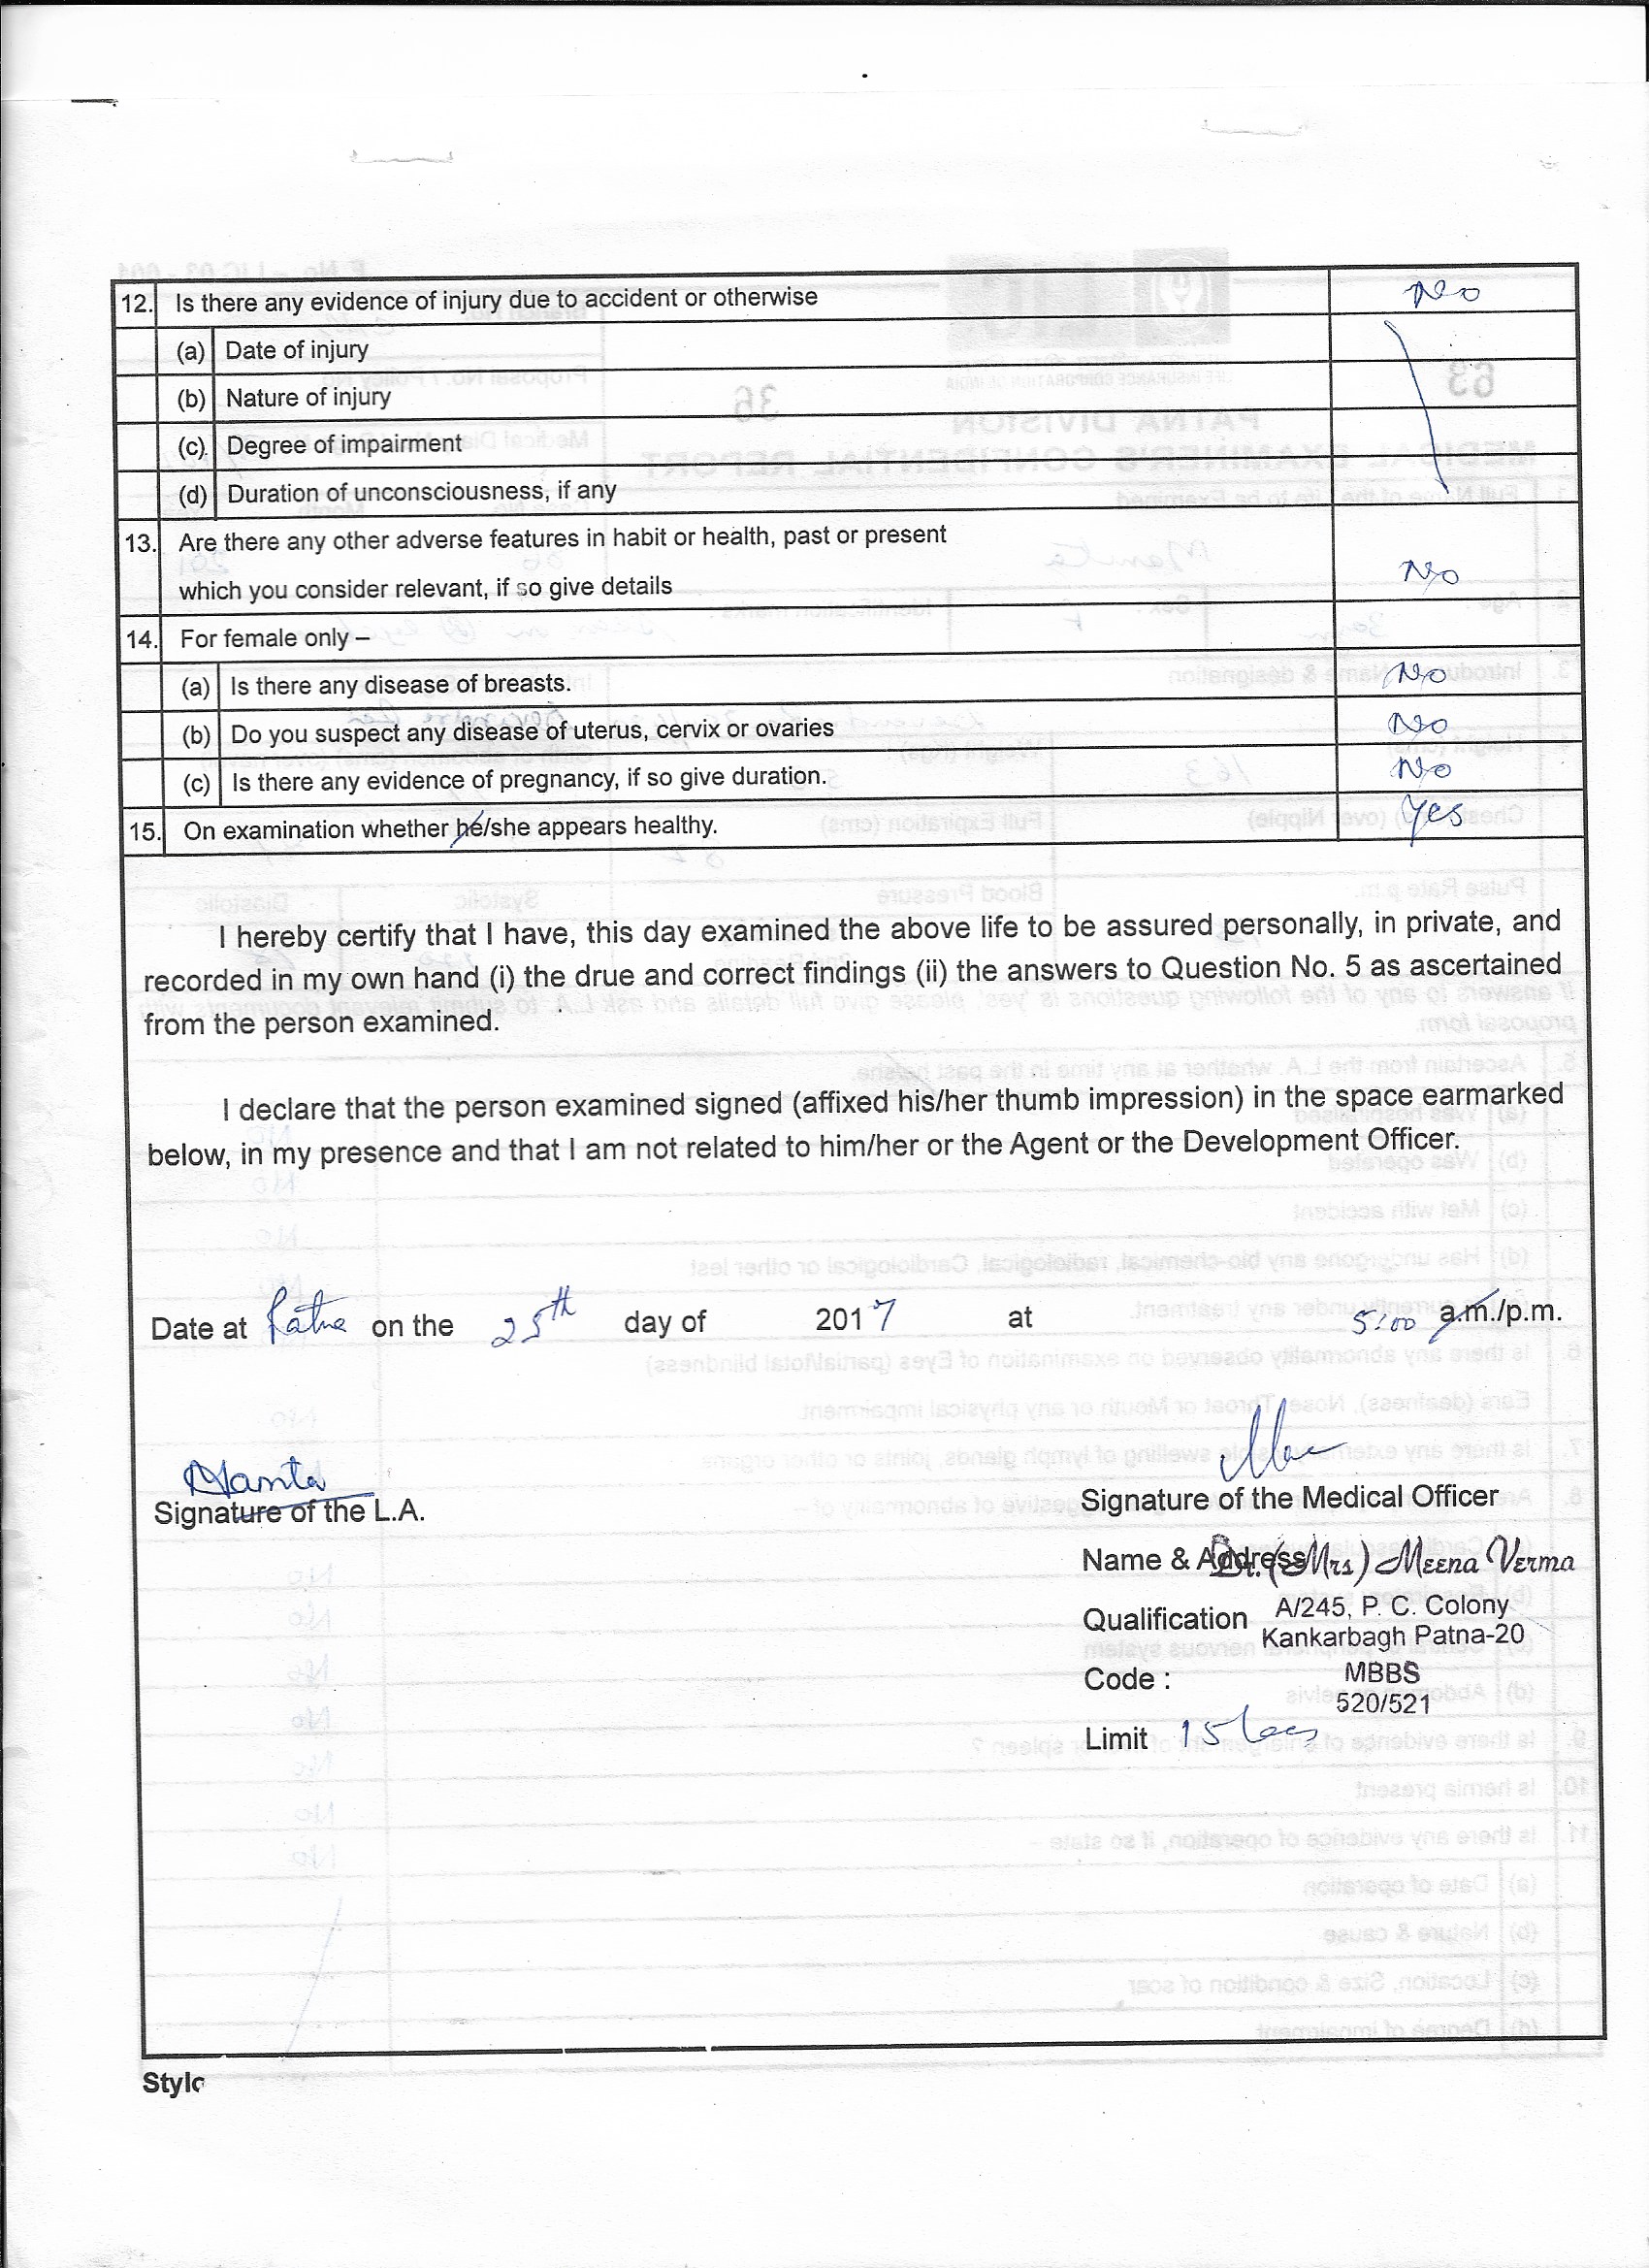 12. Is there any evidence of injury due to accident or otherwise No
(a) Date of injury
(b) Nature of injury
(c) Degree of impairment
(d) Duration of unconsciousness, if any
13. Are there any other adverse features in habit or health, past or present
which you consider relevant, if so give details No
14. For female only –
(a) Is there any disease of breasts. No
(b) Do you suspect any disease of uterus, cervix or ovaries No
(c) Is there any evidence of pregnancy, if so give duration. No
15. On examination whether he/she appears healthy. Yes
I hereby certify that I have, this day examined the above life to be assured personally, in private, and
recorded in my own hand (i) the drue and correct findings (ii) the answers to Question No. 5 as ascertained
from the person examined.
I declare that the person examined signed (affixed his/her thumb impression) in the space earmarked
below, in my presence and that I am not related to him/her or the Agent or the Development Officer.
Date at Patna on the 25th day of 2017 at 5:00 a.m./p.m.
Signature of the L.A.
Signature of the Medical Officer
Name & Address Dr. (Mrs) Meena Verma
Qualification A/245, P. C. Colony
Kankarbagh Patna-20
Code : MBBS
520/521
Limit 15 lacs